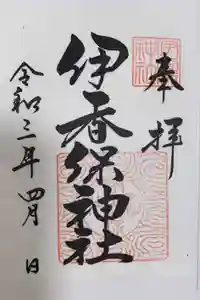 奉拝
伊香保神社
令和三年四月 日